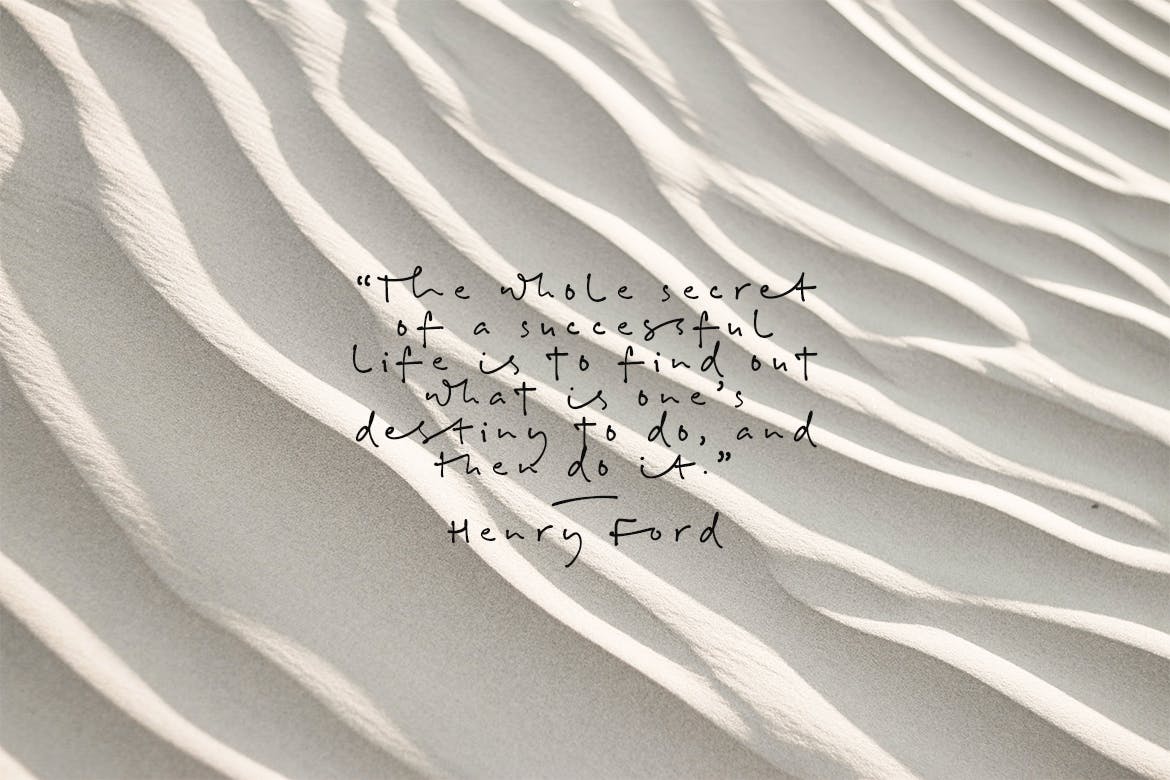 “The whole secret
of a successful
life is to find out
what is one’s
destiny to do, and
then do it.”
Henry Ford